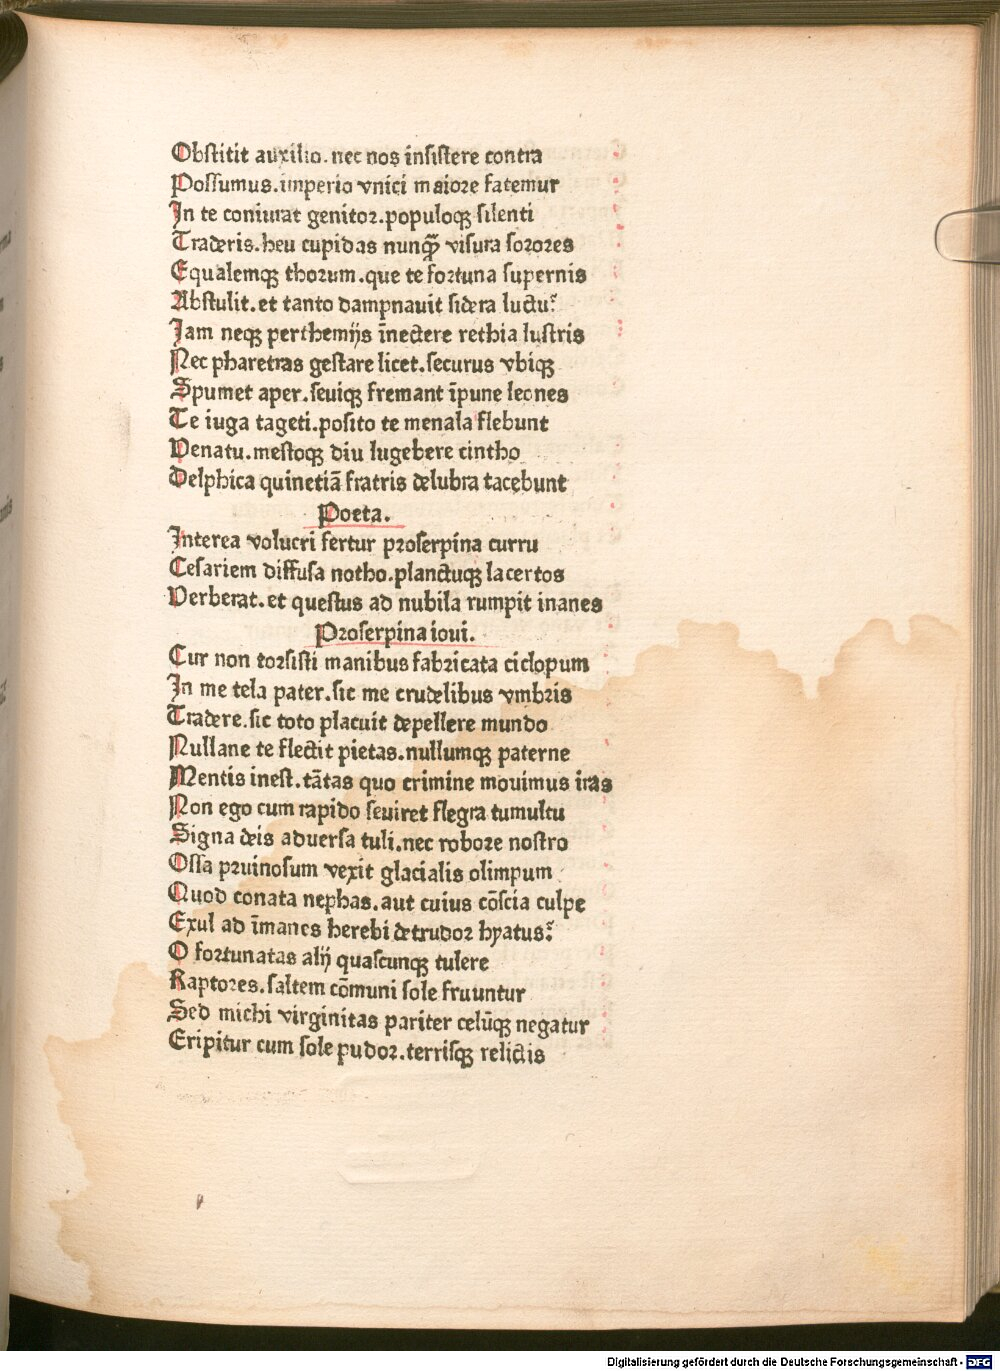 Obstitit auxilio. nec nos insistere contra
Possumus. imperio vnici maiore fatemur
In te coniurat genitor. populoqȝ silenti
Traderis. heu cupidas nunqȝ̄ visura sorores
Equalemqȝ thorum. que te fortuna supernis
Abstulit. et tanto dampnauit sidera luctu?
Jam neqȝ perthemijs īnectere rethia lustris
Nec pharetras gestare licet. securus vbiqȝ
Spumet aper. seuiqȝ fremant īpune leones
Te iuga tageti. posito te menala flebunt
Venatu. mestoqȝ diu lugebere cintho
Delphica quinetiā fratris delubra tacebunt
Poeta.
Interea volucri fertur proserpina curru
Cesariem diffusa notho. planctuqȝ lacertos
Verberat. et questus ad nubila rumpit inanes
Proserpina ioui.
Cur non torsisti manibus fabricata ciclopum
In me tela pater. sic me crudelibus vmbris
Tradere. sic toto placuit depellere mundo
Nullane te flectit pietas. nullumqȝ paterne
Mentis inest. tātas quo crimine mouimus iras
Non ego cum rapido seuiret flegra tumultu
Signa deis aduersa tuli. nec robore nostro
Ossa pruinosum vexit glacialis olimpum
Quod conata nephas. aut cuius cōscia culpe
Exul ad īmanes herebi detrudor hyatus?
O fortunatas alij quascunqȝ tulere
Raptores. saltem cōmuni sole fruuntur
Sed michi virginitas pariter celūqȝ negatur
Eripitur cum sole pudor. terrisqȝ relictis
Digitalisierung gefördert durch die Deutsche Forschungsgemeinschaft - DFG